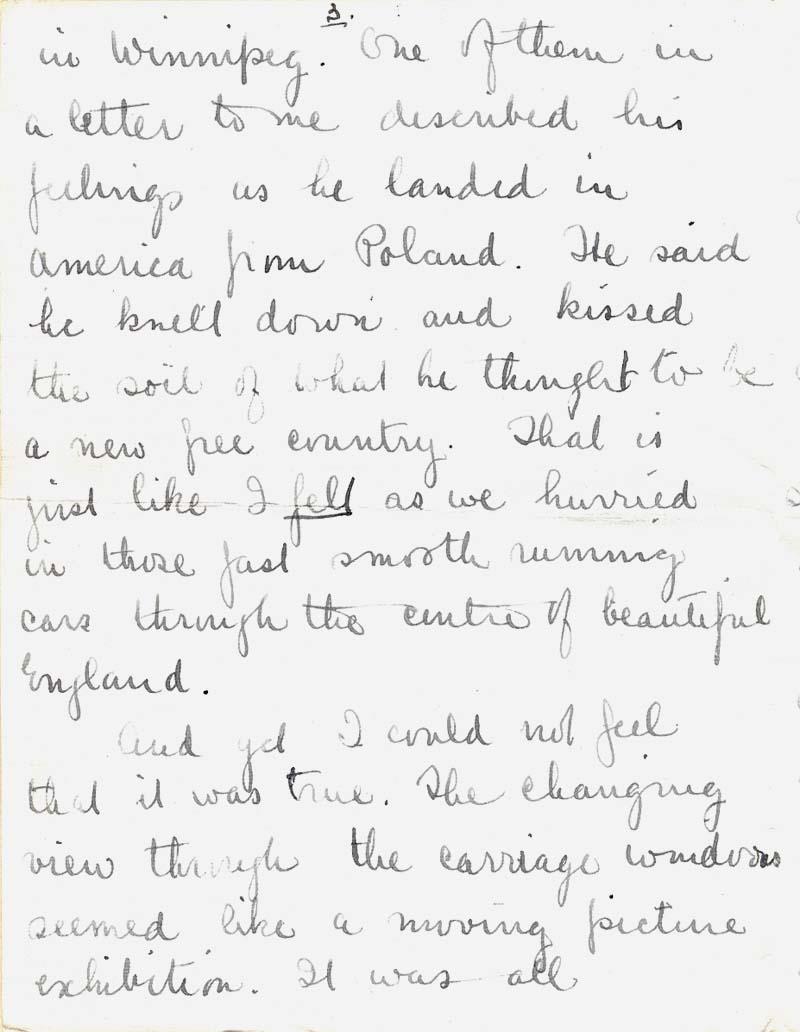 3.
in Winnipeg. One of them in
a letter to me described his
feelings as he landed in
America from Poland. He said
he knelt down and kissed
the soil of what he thought to be
a new free country. That is
just like I felt as we hurried
in those fast smooth running
cars through the centre of beautiful
England.
And yet I could not feel
that it was true. The changing
view through the carriage windows
seemed like a moving picture
exhibition. It was all